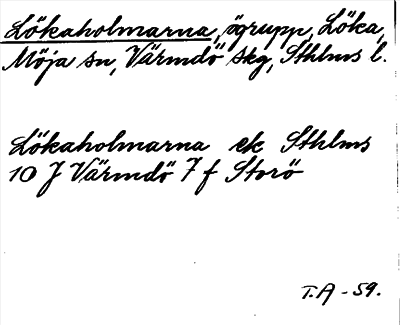 Lökaholmarna, ögrupp, Löka,
Möja sn, Värmdö skg, Sthlms l.
Lökaholmarna ek Sthlms
10 J Värmdö 7 f Storö
T.A - 59.